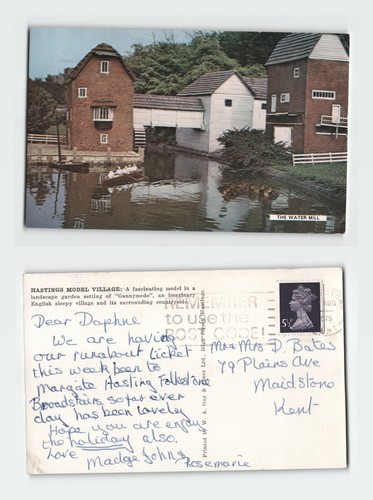 THE WATER MILL
HASTINGS MODEL VILLAGE: A fascinating model in a
landscape garden setting of "Gannymede", an imaginary
English sleepy village and its surrounding countryside.
REMEMBER
to use the
POST CODE!
AUG
1975
5½P
Dear Daphne
We are having
our runabout ticket
this week been to
Margate Hasting Folkestone
Broadstairs so far ever
day has been lovely
Hope you are enjoy
the holiday also.
Love
Madge John
Rosemarie
Mr + Mrs D. Bates
79 Plains Ave
Maidstone
Kent
Printed by W. A. Guy
Ltd., High Street, Hastings.